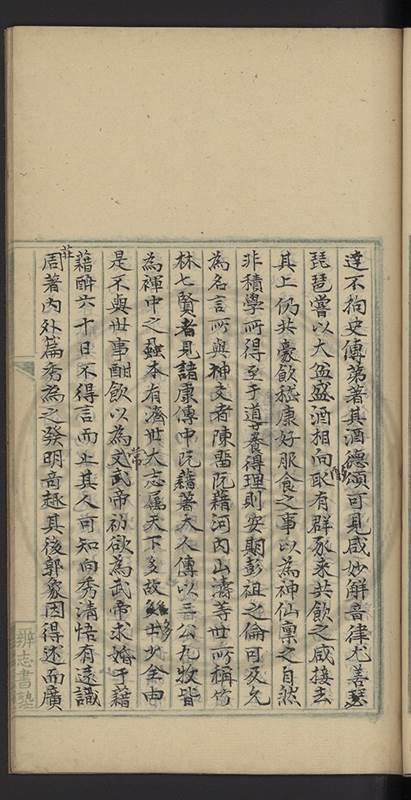 達不拘史傳第著其酒德頌可見咸妙解音律尤善琴
琵琶嘗以大盆盛酒相向取有群豕来共飲之咸接去
其上仍共豪飲嵇康好服食之事以為神仙稟之自然
非積學所得至于道養得理則安期彭祖之倫可及允
為名言所與神交者陳畱阮籍河內山濤等世所稱竹
林七賢者見諸康傳中阮籍著大人傳以三公九牧皆
為褌中之蝨本有濟世大志属天下多故士少全由
是不與世事酣飲以為常文武帝初欲為武帝求婚于藉
籍醉六十日不得言而止其人可知向秀清悟有遠識
莊周著內外篇秀為之發明奇趣其後郭象因得述而廣
辨志書塾